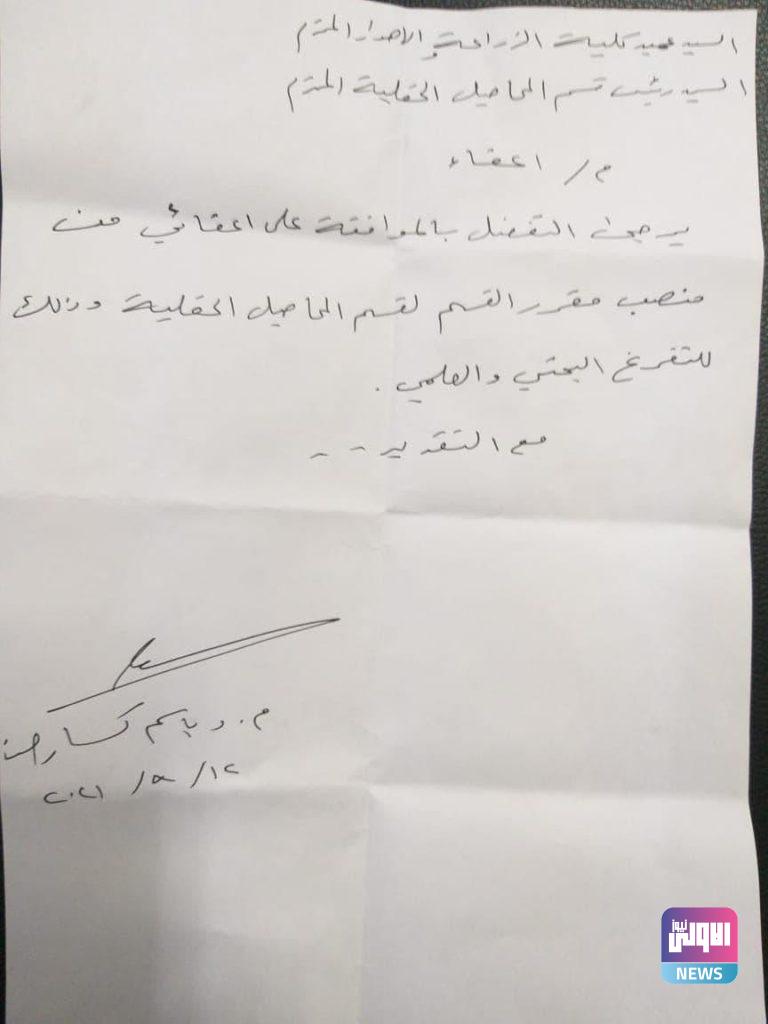 السيد عميد كلية الزراعة و الاهوار المحترم
السيد رئيس قسم المحاصيل الحقلية المحترم
م/ اعفاء
يرجى التفضل بالموافقة على اعفائي من
منصب مقرر القسم لقسم المحاصيل الحقلية وذلك
للتفرغ البحثي والعلمي .
مع التقدير - -
م. د باسم كسار حسن
١٢ / ٨ / ٢٠٢١
الاولى نيوز
NEWS